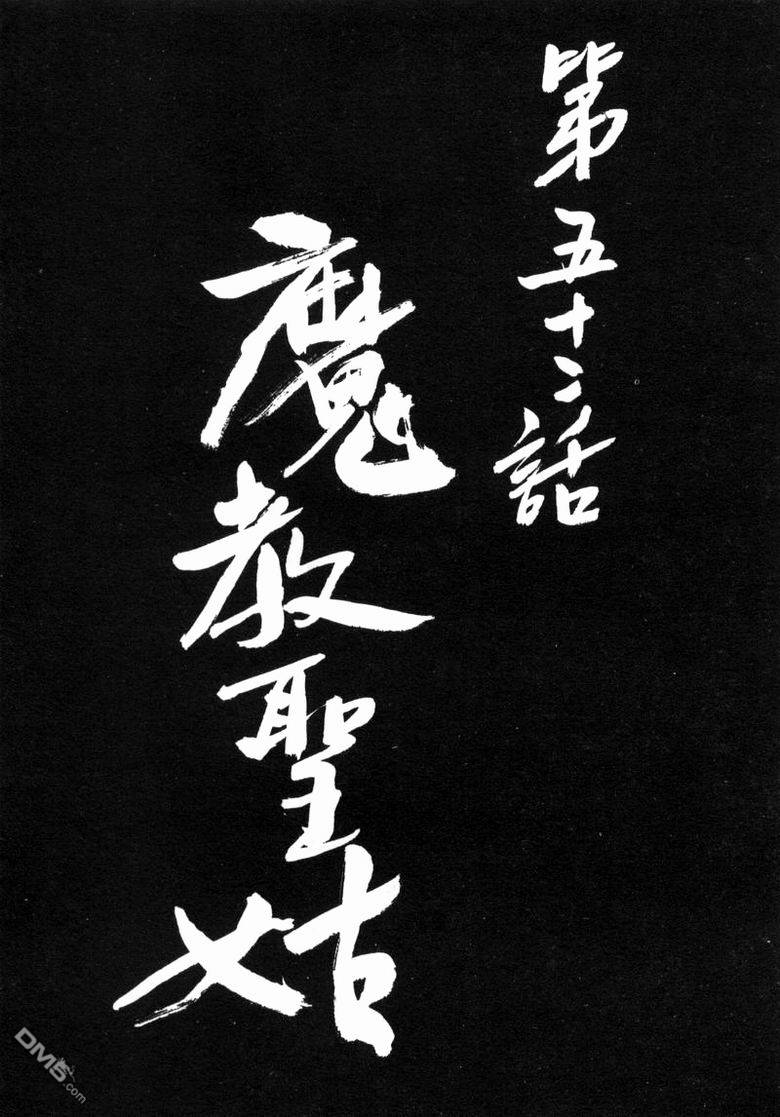 第五十二話
魔教聖姑
DM5.com